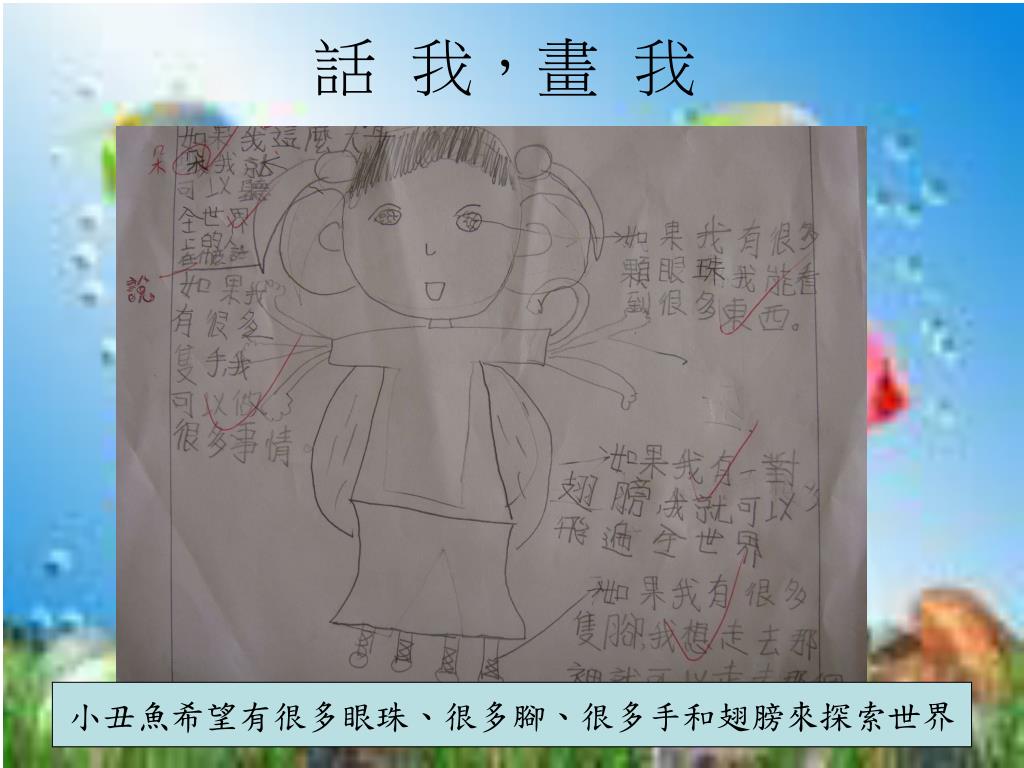 話 我,畫 我
如果我這麼大
朵
朵我就
可以聽
全世界
的人
說
如果我
有很多
隻手我
可以做
很多事情。
如果我有很多
顆眼珠,我能看
到很多東西。
如果我有一對
翅膀,我就可以
飛遍全世界
如果我有很多
隻腳,我想走去那
裡就可以走去那個
小丑魚希望有很多眼珠、很多腳、很多手和翅膀來探索世界